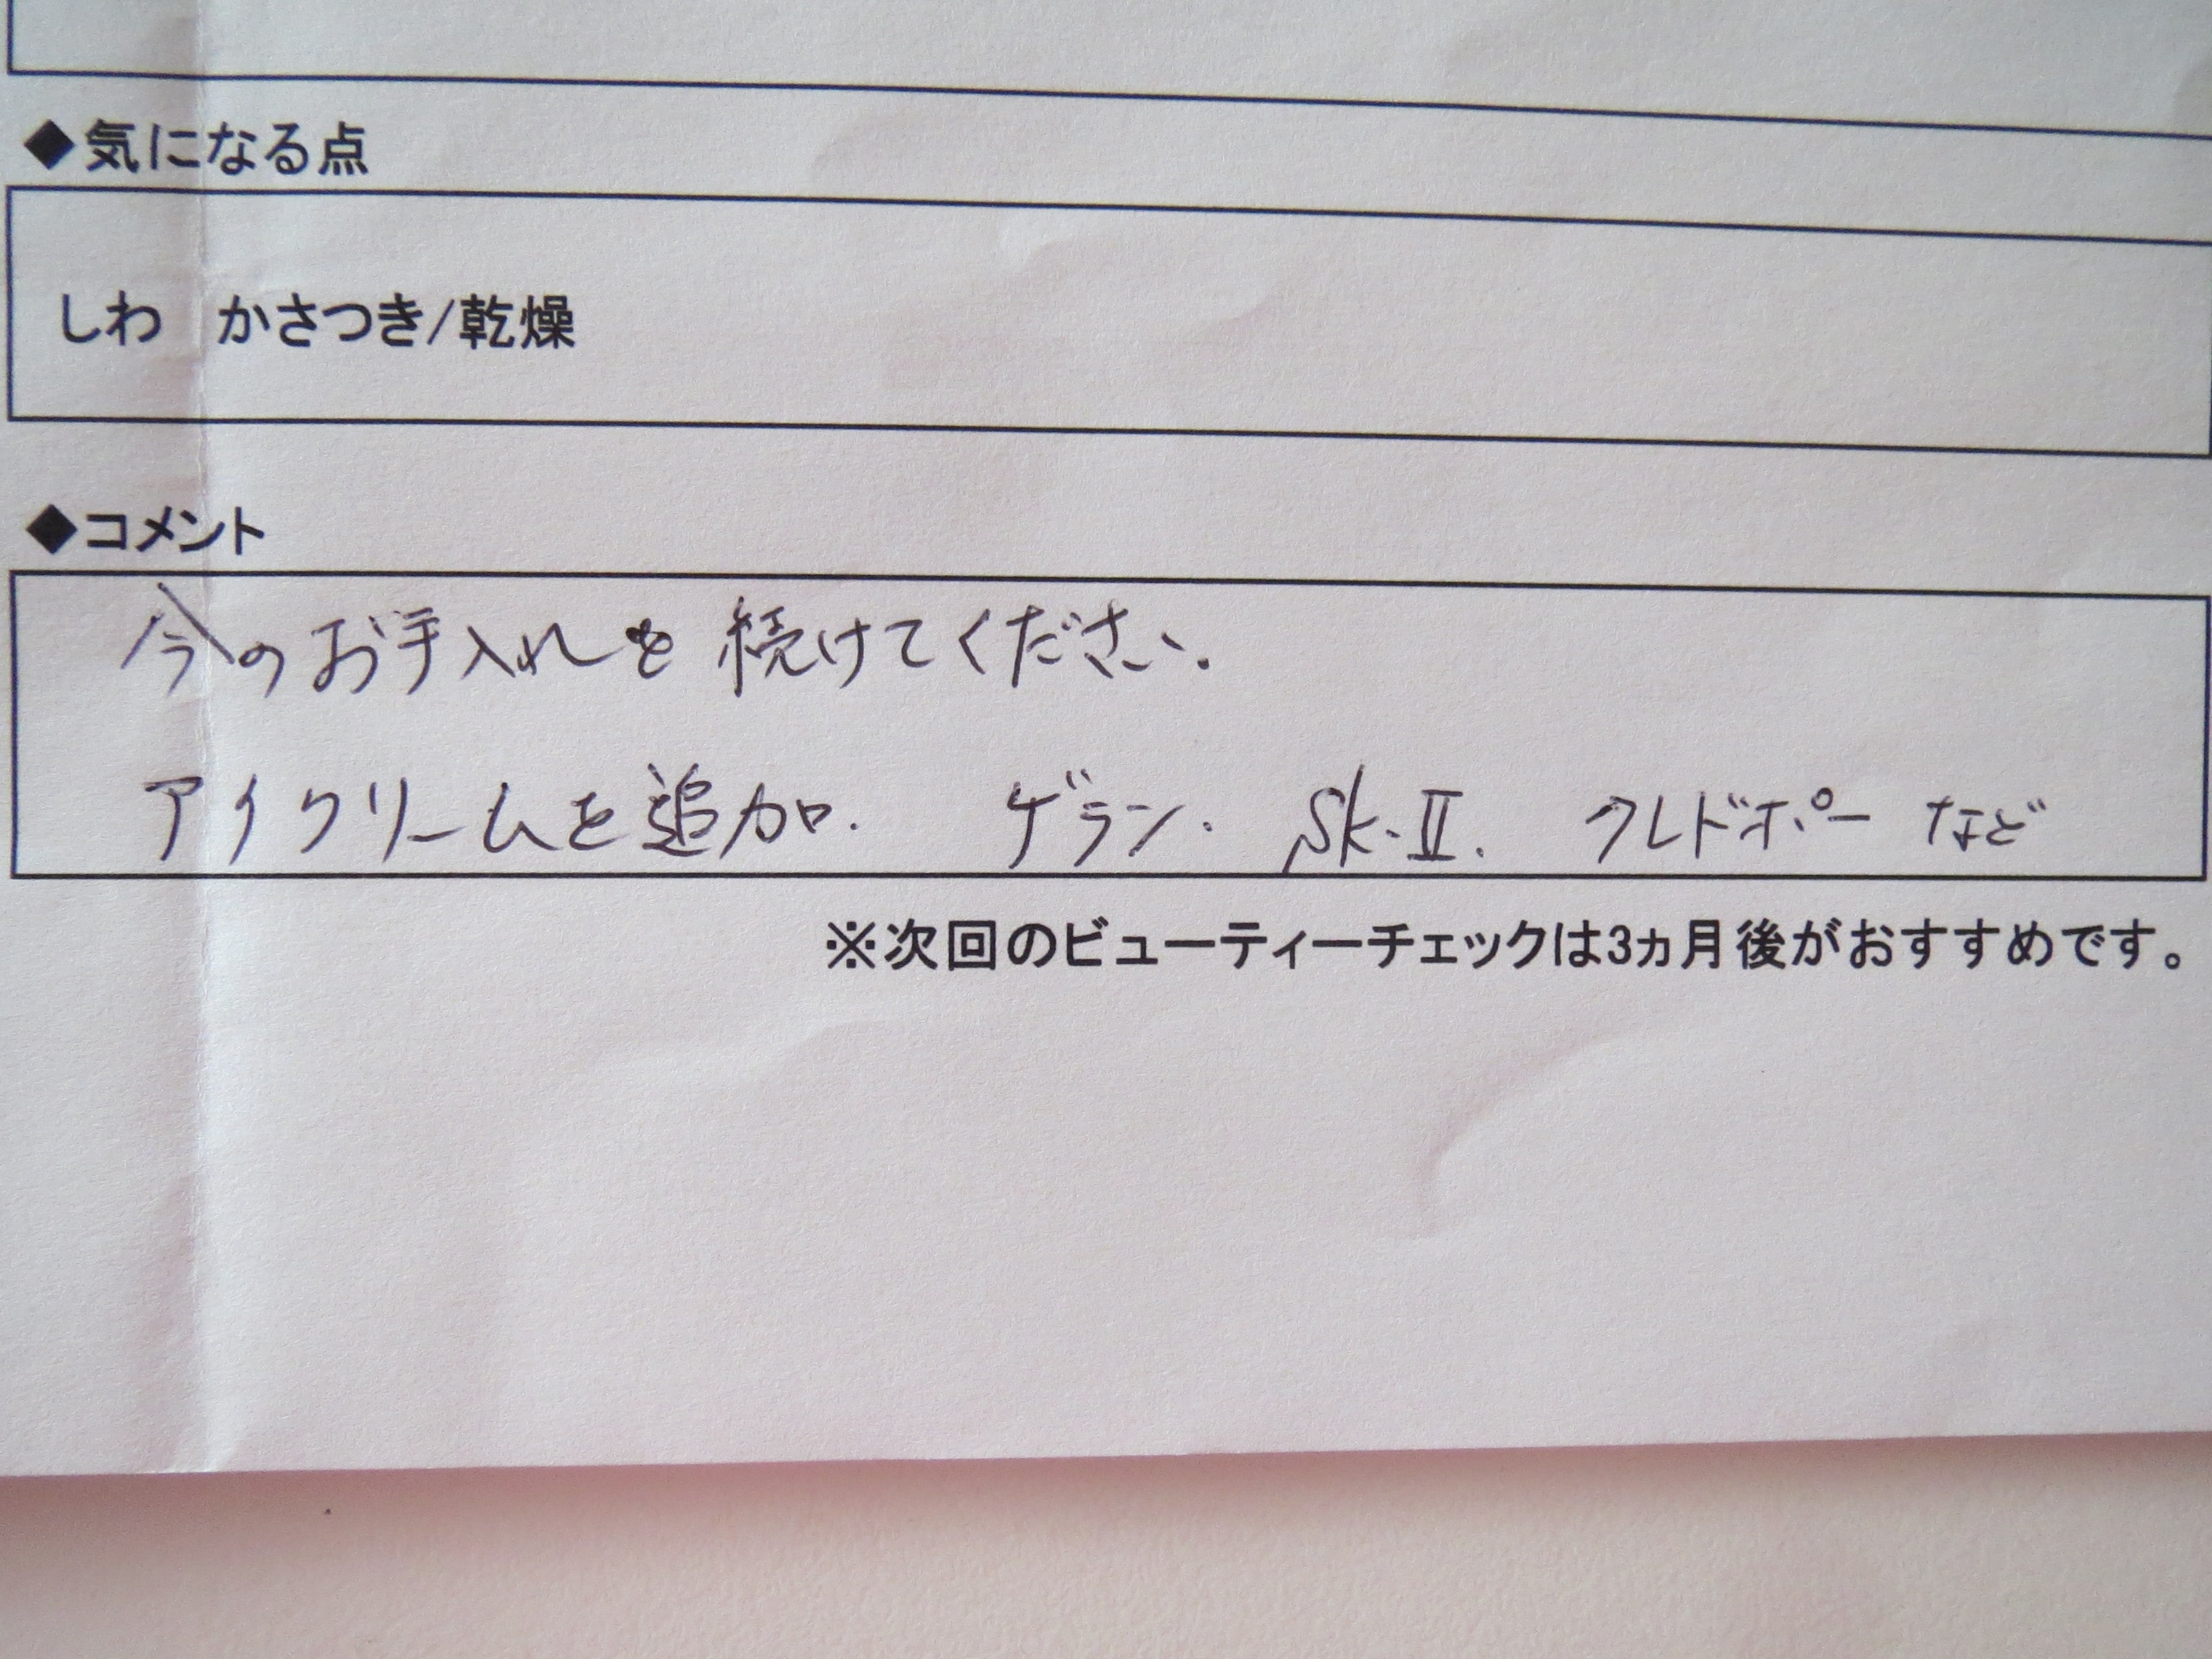 ◆気になる点
しわ　かさつき/乾燥
◆コメント
今のお手入れを続けてください.
アイクリームを追加.　ゲラン.　SK-Ⅱ.　クレドポー　など
※次回のビューティーチェックは3ヵ月後がおすすめです。